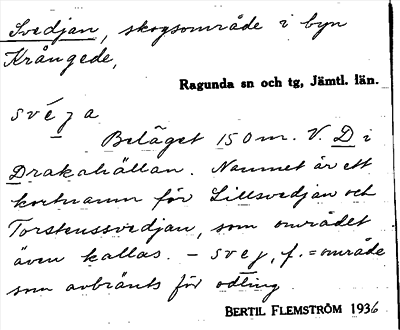 Svedjan, skogsområde i byn
Krångede,
Ragunda sn och tg, Jämtl. län.
svéja
Beläget 150 m. V. D i
Drakahällan. Namnet är ett
kortnamn för Lillsvedjan och
Torstenssvedjan, som området
även kallas. - svej, f. = område
som avbränts för odling
BERTIL FLEMSTRÖM 1936